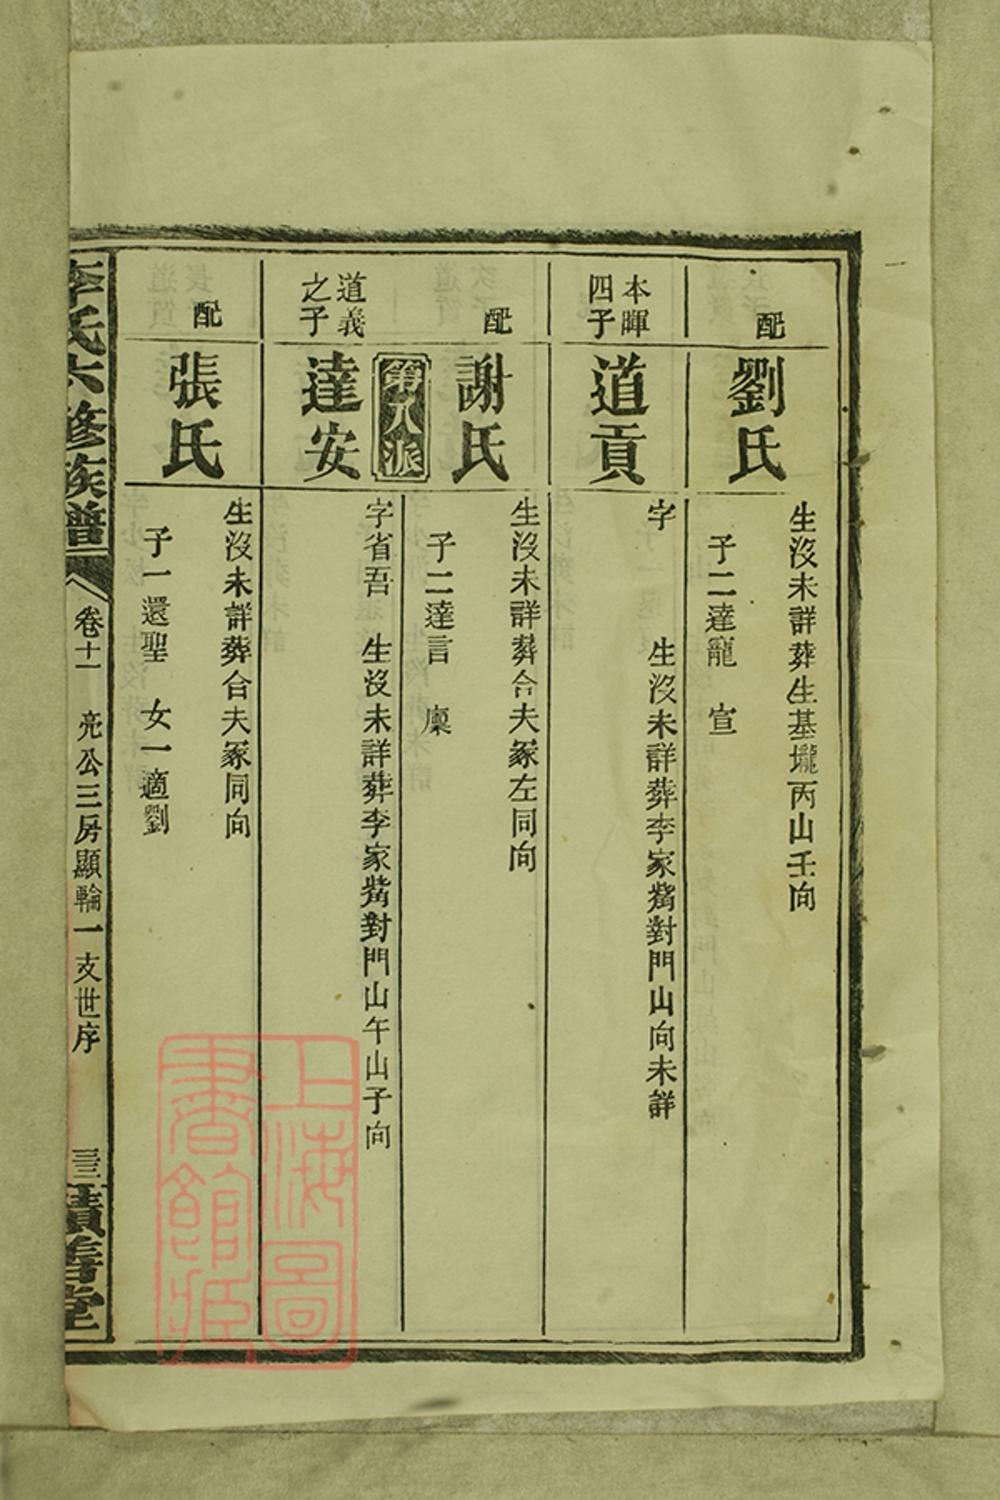 配
劉氏
生沒未詳葬生基壠丙山壬向
子二達寵　宣
本暉
四子
道貢
字　　生沒未詳葬李家觜對門山向未詳
配
謝氏
生沒未詳葬合夫冢左同向
子二達言　廩
第八派
道義
之子
達安
字省吾　生沒未詳葬李家觜對門山午山子向
配
張氏
生沒未詳葬合夫冢同向
子一還聖　女一適劉
李氏六修族譜
卷十一　亮公三房顯輪一支世序
三三
積善堂
上海圖
書館藏